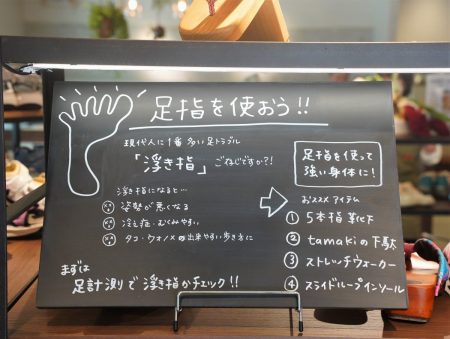 足指を使おう!!
現代人に1番多い足トラブル
「浮き指」ご存じですか?!
浮き指になると…
姿勢が悪くなる
冷え症・むくみやすい
タコ・ウオノメの出来やすい歩き方に
まずは
足計測で浮き指かチェック!!
足指を使って
強い身体に!
おススメ アイテム
① 5本指靴下
② tamakiの下駄
③ ストレッチウォーカー
④ スライドループインソール